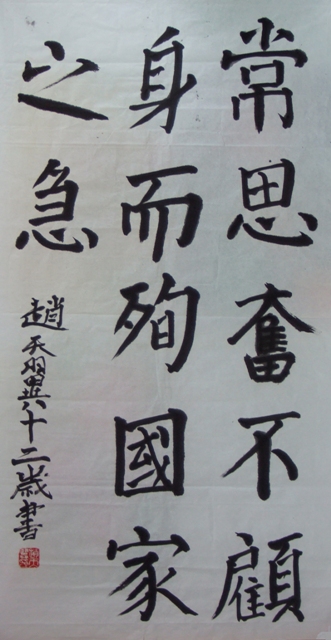 常思奮不顧
身而殉國家
之急
趙天翼八十二歲書